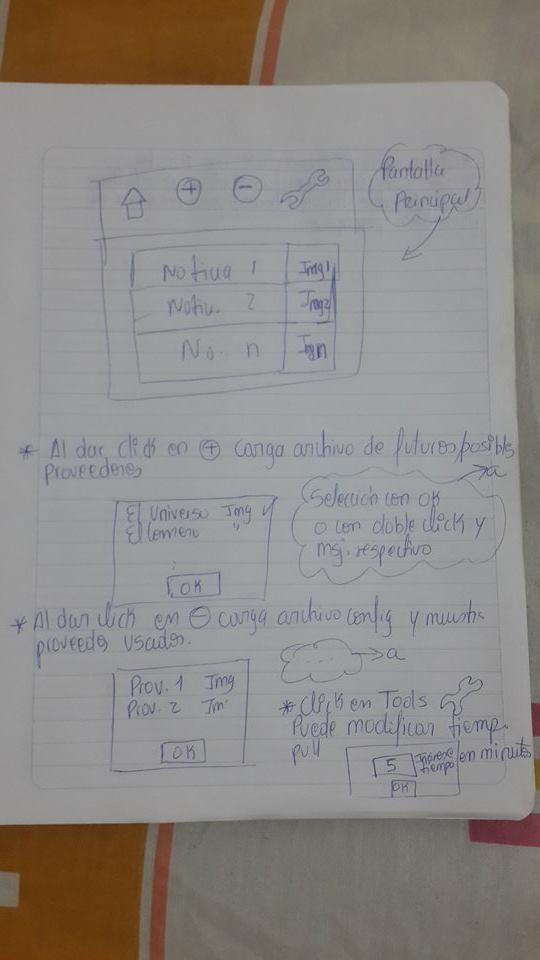 Pantalla
Principal
Noticia 1 Img1
Notic. 2 Img2
No. n Imgn
* Al dar click en ⊕ carga archivo de futuros posible
proveedores
→ a
El Universo Img ✓
El Comercio "
OK
Selección con OK
o con doble click y
msj. respectivo
* Al dar click en ⊖ carga archivo config y muestra
proveedos usados.
..... → a
Prov. 1 Img
Prov. 2 Im
OK
* Click en Tools
Puede modificar tiemp.
pull
5 Ingrese tiempo en minutos
OK